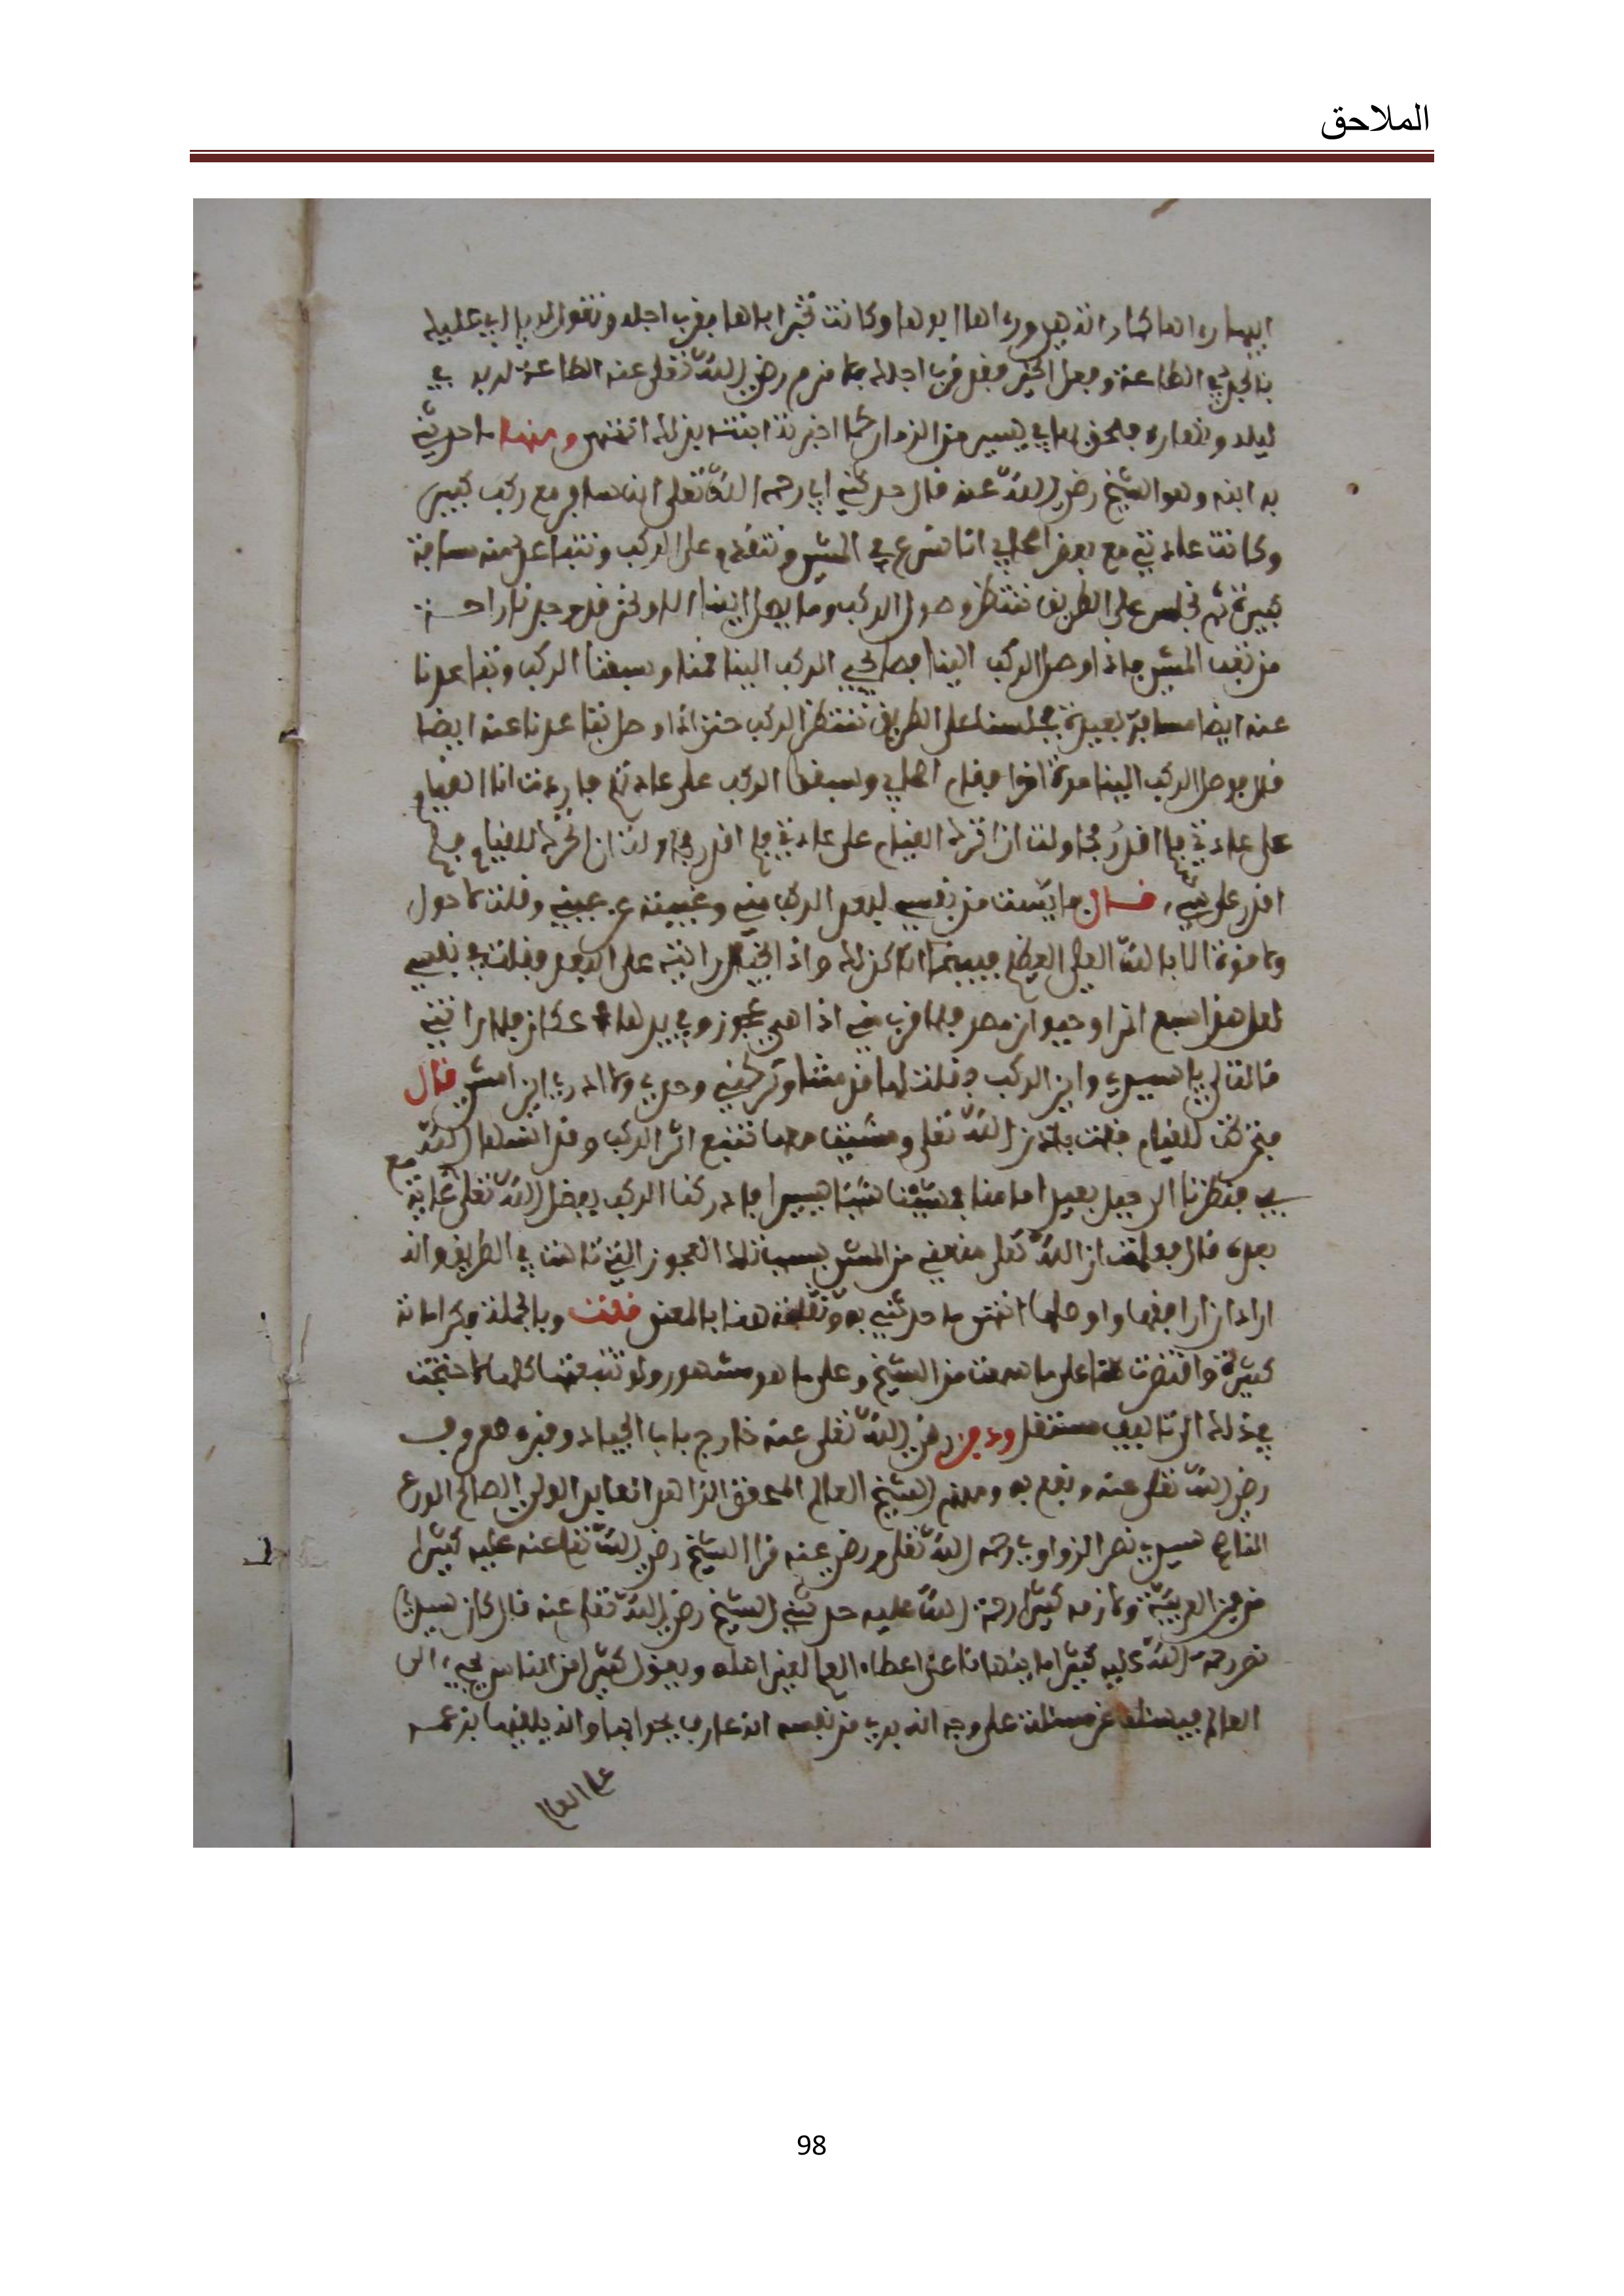 الملاحق
وكانت تخبر اباها بقرب اجله وتقول له يا ابي عليك
بالجد في الطاعة وفعل الخير فقد قرب اجلك رضي الله تعلى عنه الطاعة لربه في
ليله ونهاره من الزمان كما اخبرته ابنته بذلك انتهى ومنها ما حدثني
به ابنه وهو الشيخ رضي الله عنه قال حدثني ابي رحمه الله تعلى انه سافر مع ركب كبير
وكانت عادتي مع بعض اصحابي انا نسرع في المشي ونتقدم على الركب ونتباعد منه مسافة
كبيرة ثم نجلس على الطريق ننتظر وصول الركب وما يصل الينا الا ونحن قد وجدنا راحة
من تعب المشي فاذا وصل الركب الينا قمنا وسبقنا الركب وتباعدنا
عنه ايضا مسافة بعيدة فجلسنا على الطريق ننتظر الركب حتى اذا وصل تباعدنا عنه ايضا
قال فوصل الركب الينا مرة اخرى فقام اصحابي وسبقوا الركب على عادتهم فاردت انا القيام
على عادتي فما اقدر فحاولت القيام على عادتي فلم اقدر فحاولت ان اتحرك للقيام فلم
اقدر على شيء قال فايست من نفسي لبعد الركب مني وغيبته عن عيني وقلت لا حول
ولا قوة الا بالله العلي العظيم فبينما انا كذلك واذا بخيال رايته على البعد فقلت في نفسي
لعل هذا سبع اخر او حيوان مضر فلما قرب مني اذا هي عجوز وفي يدها عكاز فلما راتني
قالت لي يا سيدي واين الركب فقلت لها قد مشا وتركني وحدي ولا ادري اين امشي قال
فتحركت للقيام فقمت باذن الله تعلى ومشيت معها نتبع اثر الركب وقد انسها الله مع
بي فنظرنا الى جبل بعيد امامنا فمشينا شيئا يسيرا فادركنا الركب بفضل الله تعلى
بعده قال فعلمت ان الله تعلى منعني من المشي بسبب تلك العجوز التي تاهت في الطريق وانه
اراد ان ارافقها واوصلها انتهى ما حدثني به ونقلته هنا بالمعنى قلت وبالجملة فكراماته
كثيرة واقتصرت هنا على ما سمعت من الشيخ وعلى ما هو مشهور ولو تتبعتها كلها لاحتجت
في ذلك الى تاليف مستقل ودفن رضي الله تعلى عنه خارج باب الجياد وقبره معروف
رضي الله تعلى عنه ونفع به ومنهم الشيخ العالم المحقق الزاهد العابد الولي الصالح الورع
الناصح سيدي نصر الزواوي رحمه الله تعلى ورضي عنه قرا الشيخ رضي الله تعلى عنه عليه كثيرا
من العربية ولازمه كثيرا رحمة الله عليه حدثني الشيخ رضي الله تعلى عنه قال كان سيدي
نصر رحمة الله عليه كثيرا ما ينهانا عن اعطاء العلم لغير اهله ويقول كثير من الناس يجيء الى
العالم فيسئله عن مسئلة على وجه انه يري من نفسه انه عارف بجوابها وانه يلقيها بزعمه
على العالم
98